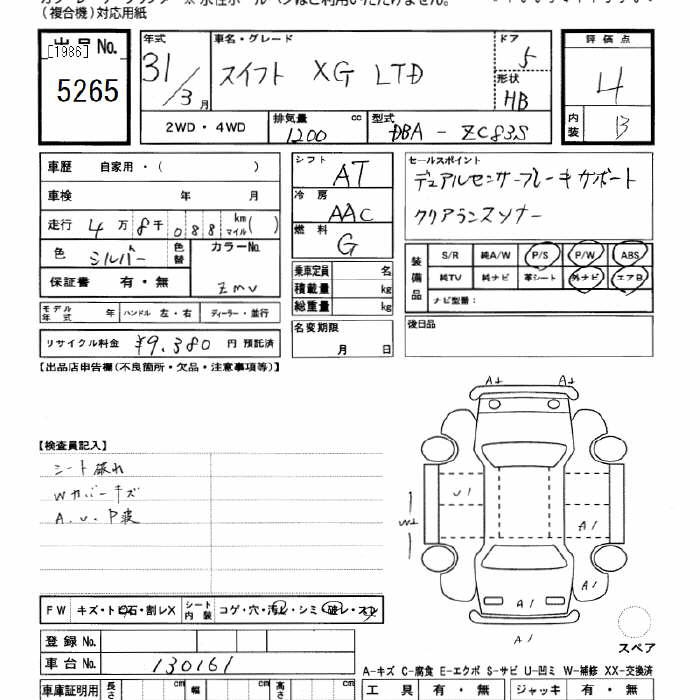 (複合機)対応用紙
出品No.
[1986]
5265
年式
31/3月
車名・グレード
スイフト XG LTD
ドア
5
形状
HB
評価点
4
内装
B
2WD・4WD
排気量
1200 cc
型式
DBA-ZC83S
車歴 自家用・( )
車検 年 月
走行 4万8千088 km マイル( )
色 シルバー
色替
カラーNo.
ZMV
保証書 有・無
モデル年式 年 ハンドル 左・右 ディーラー・並行
リサイクル料金 ¥9,380 円 預託済
シフト
AT
冷房
AAC
燃料
G
乗車定員 名
積載量 kg
総重量 kg
名変期限
月 日
セールスポイント
デュアルセンサーブレーキサポート
クリアランスソナー
装備品
S/R 純A/W P/S P/W ABS
純TV 純ナビ 革シート 外ナビ エアB
ナビ型番:
後日品
【出品店申告欄(不良箇所・欠品・注意事項等)】
【検査員記入】
シート破れ
Wカバーキズ
A.U.P波
A1 A1
U1
W1
A1
A1
A1
A1
スペア
FW キズ・トビ石・割レX シート内装 コゲ・穴・汚レ・シミ・破レ・スレ
登録No.
車台No. 130161
A-キズ C-腐食 E-エクボ S-サビ U-凹ミ W-補修 XX-交換済
車庫証明用 長さ cm 幅 cm 高さ cm
工具 有・無 ジャッキ 有・無